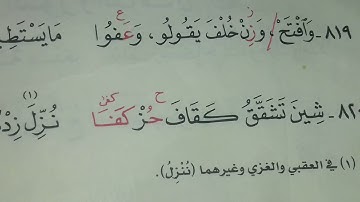 ٨١٩- وَافْتَحْ، وَزِنْ خُلْفَ يَقُولُو، وَعَفُوا مَا يَسْتَطِي
ز ع
٨٢٠- شِينَ تَشَقَّقُ كَقَافَ حُزْ كَفَا نُزِّلَ زِدْ
ح كفى (١)
(١) في العقبي والغزي وغيرهما (نُنْزِلُ).